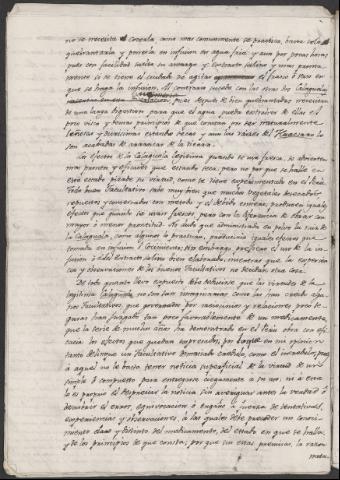 no se necesita cocerla como mas comunmente se practica, basta solo
quebrantarla y ponerla en infusion en agua fria: y aun por pocas horas,
pues con facilidad suelta su amargo y extracto salino y mas pronta-
mente si se tiene el cuidado de agitar el frasco ó vaso en
que se haga la infusion. Al contrario sucede con las otras dos Calagualas
pues despues de bien quebrantadas necesitan
de una larga digestion para que el agua pueda extraher de ellas el
poco visco y tenues principios de que constan por ser naturalmente
Leñosas y durisimas estando secas y aun las raices del Huacsaro
son acabadas de arrancar de la tierra.
Los efectos de la Calaguala legitima quando se usa fresca, se advierten
mas prontos y eficaces que estando seca, pero no por que se halle en
este estado pierde su virtud como se tiene experimentado en el Perú.
Todo buen Facultativo sabe muy bien que muchos vegetales desecados,
repuestos y conservados con metodo y el debido esmero, producen iguales
efectos que quando se usan frescos, pero con la diferencia de obrar con
mayor ó menor prontitud. No dudo que administrada en polvo la raiz de
la Calaguala, como algunos lo practican, producirá iguales efectos que
tomada en infusion y cocimiento: sin embargo prefiero el uso de la in-
fusion ó del Extracto salino bien elaborado, mientras que la experien-
cia y observaciones de los buenos Facultativos no decidan otra cosa.
De todo quanto llevo expuesto debe deducirse que las virtudes de la
legitima Calaguala, no son tan imaginarias como las han creido algu-
nos Facultativos, que preocupados por raciocinios y relaciones poco se-
guras han juzgado tan poco favorablemente de un medicamento,
que la serie de muchos años ha demostrado en el Perú obra con efi-
cacia los efectos que quedan expresados, por lo que en mi opinion
tanto delinque un Facultativo demasiado credulo, como el incredulo, pues
á aquel no le basta tener noticia superficial de la virtud de un
simple ó compuesto para entregarse ciegamente á su uso, ni á este
le es propio el despreciar la noticia sin averiguar antes la verdad ó
descubrir el error, equivocacion ó engaño á fuerza de tentativas,
experiencias y observaciones, á las quales debe preceder un conoci-
miento claro y distinto del medicamento, del estado en que se halla
y de los principios de que consta, por que sin estas premisas, la razon